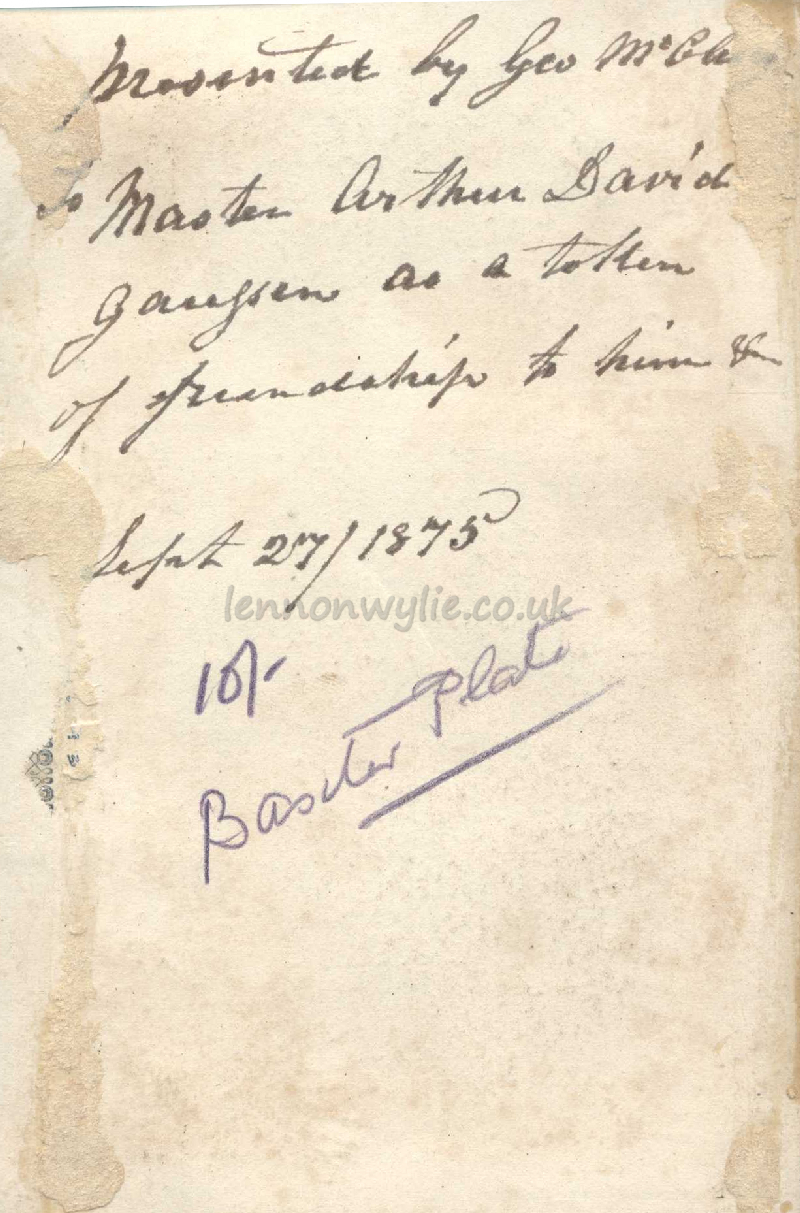 Presented by Geo McCl
to Master Arthur David
Gaussen as a token
of friendship to him &
Sept 27/1875
lennonwylie.co.uk
10/-
Baxter Plate